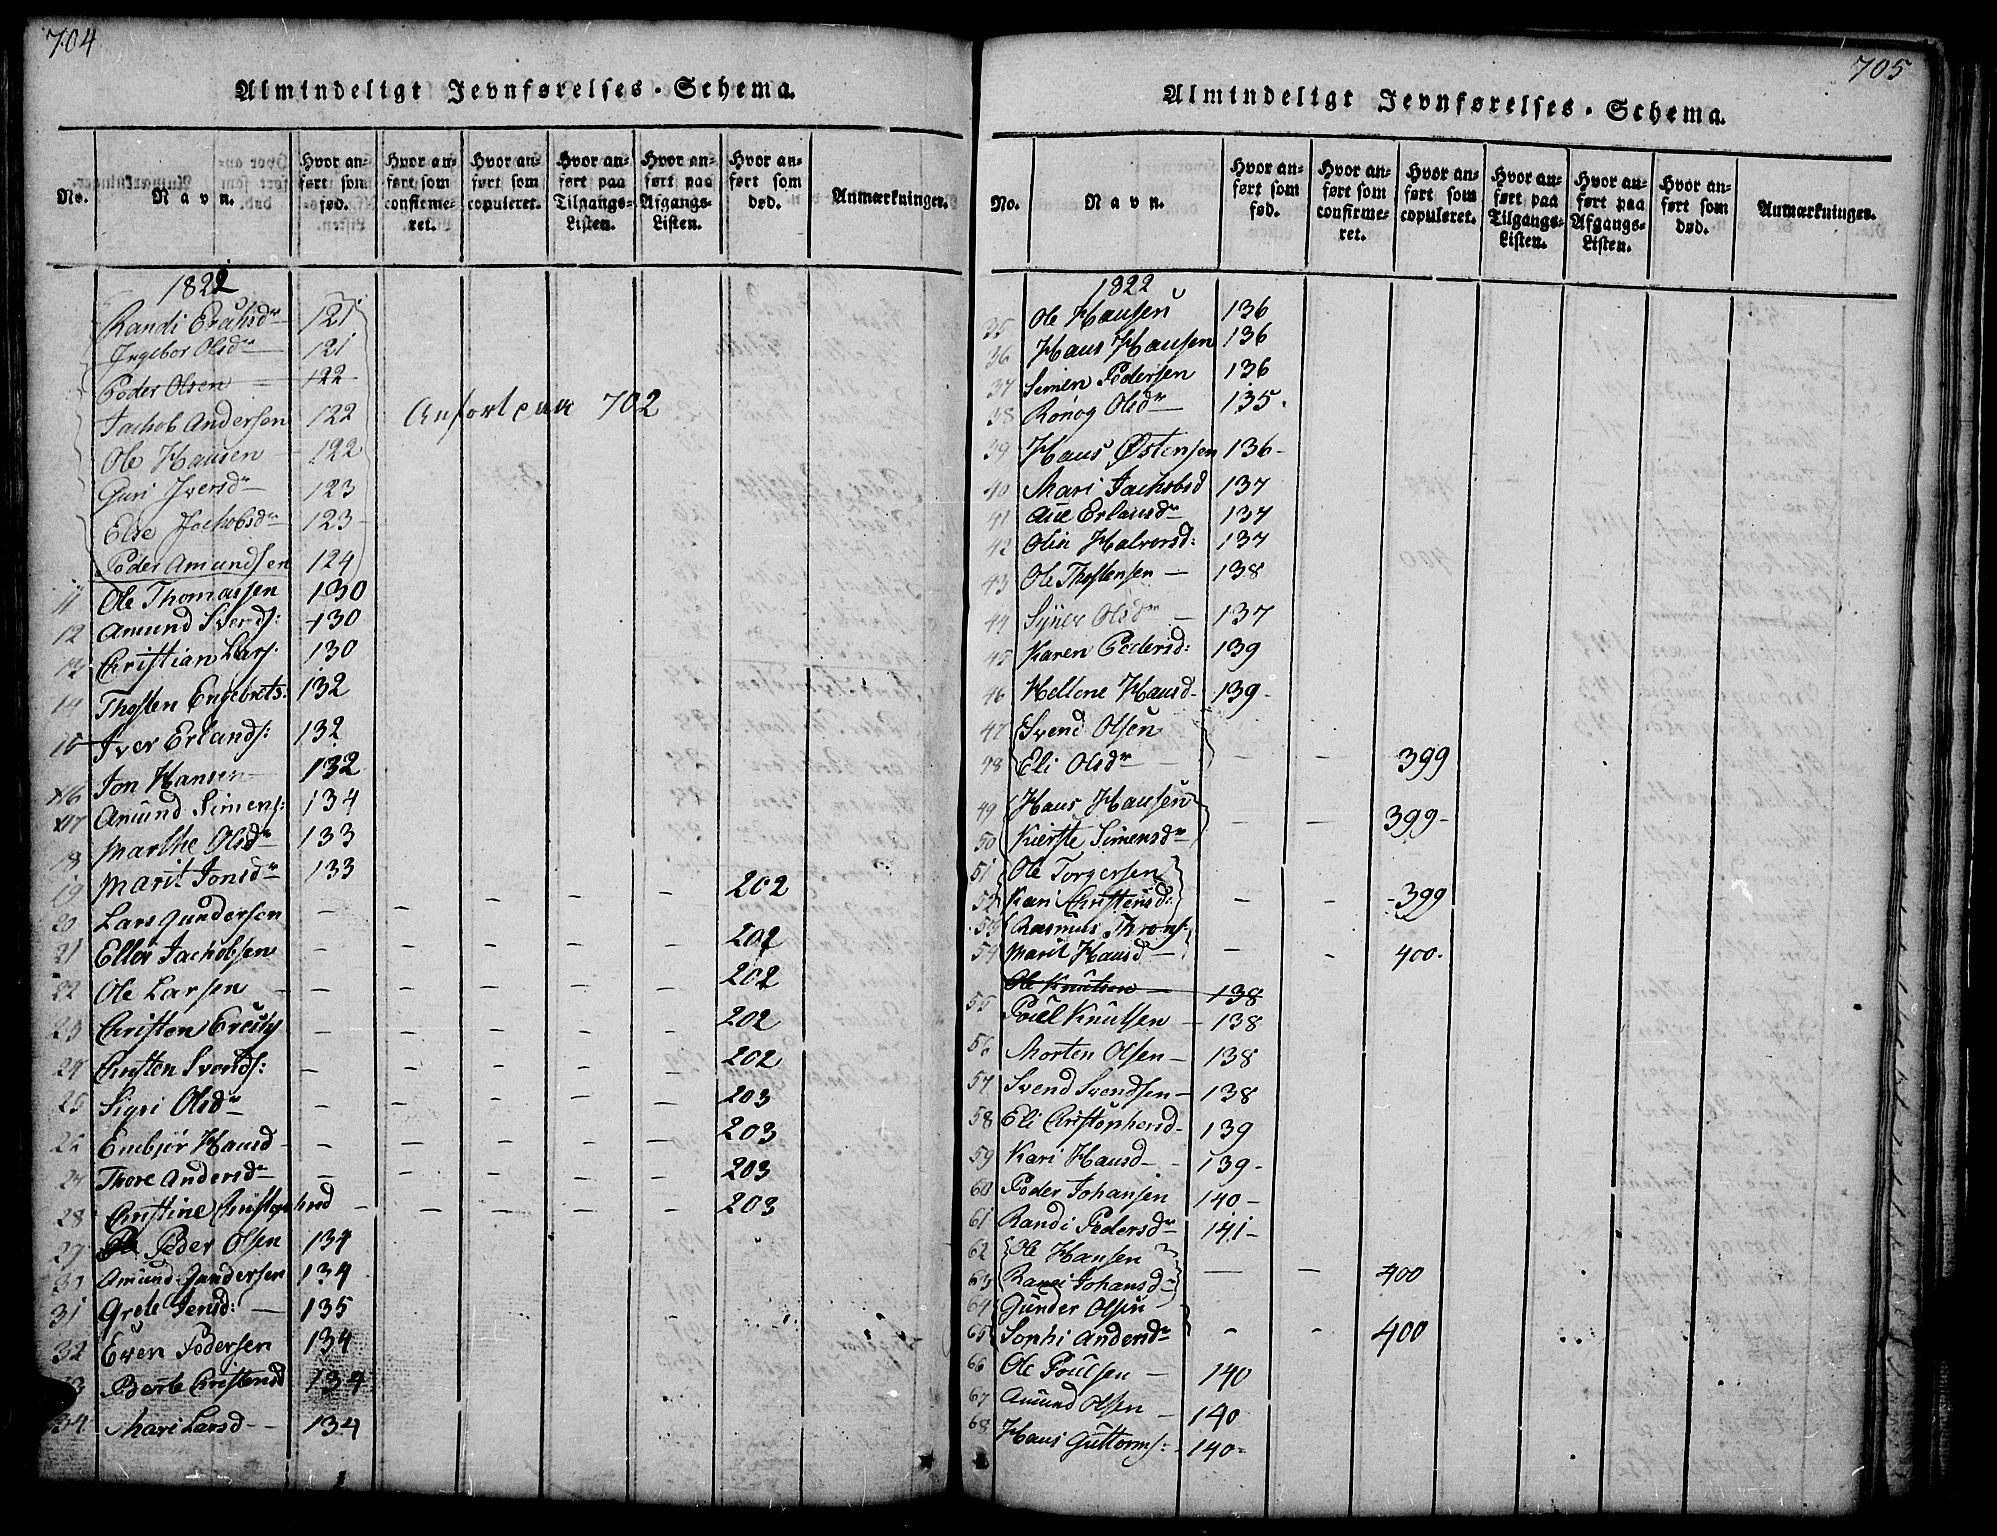 704
Almindeligt Jevnførelses-Schema.
No. Navn. Hvor anført som fød. Hvor anført som confirmeret. Hvor anført som copuleret. Hvor anført paa Tilgangs-Listen. Hvor anført paa Afgangs-Listen. Hvor anført som død. Anmærkninger.
1822
Randi 121
Ingebor Olsdr 121
Peder Olsen 122
Jachob Andersen 122 702
Ole Hansen 122
Guri Iversdr 123
Else Jachobsdr 123
Peder Amundsen 124
11 Ole Thomassen 130
12 Amund Svends: 130
13 Christian Lars. 130
14 Thosten Engebrets: 132
15 Iver Erlands: 132
x16 Jon Hansen 132
x17 Amund Simens: 134
18 Marthe Olsdr 133
19 Marit Jonsdr 133
20 Lars Gundersen – – – – – 202
21 Ellev Jachobsen – – – – – 202
22 Ole Larsen – – – – – 202
23 Christen – – – – – 202
24 Christen Svends: – – – – – 202
25 Sigri Olsdr – – – – – 203
26 Embjør Hansd – – – – – 203
27 Thore Andersdr – – – – – 203
28 Christine Christophersd – – – – – 203
29 Peder Olsen 134
30 Amund Gundersen 134
31 Grete Jensd: 135
32 Even Pedersen 134
33 Berte Christensd 134
34 Mari Larsd 134
705
Almindeligt Jevnførelses-Schema.
No. Navn. Hvor anført som fød. Hvor anført som confirmeret. Hvor anført som copuleret. Hvor anført paa Tilgangs-Listen. Hvor anført paa Afgangs-Listen. Hvor anført som død. Anmærkninger.
1822
35 Ole Hansen 136
36 Hans Hansen 136
37 Simen Pedersen 136
38 Rønog Olsdr 135.
39 Hans Østensen 136
40 Mari Jachobsd 137
41 Ane Erlandsdr 137
42 Olia Halvorsd: 137
43 Ole Thostensen 138
44 Olsdr 137
45 Karen Pedersd: 139
46 Hellene Hansd 139
47 Svend Olsen
48 Eli Olsdr – – 399
49 Hans Hansen
50 Kierste Simensdr – – 399
51 Ole Torgersen
52 Kari Christensd: – – 399
53 Rasmus Throns:
54 Marit Hansd – – 400.
Ole Knutsen 138
55 Poul Knutsen 138
56 Morten Olsen 138
57 Svend Svendsen 138
58 Eli Christophersd 139
59 Kari Hansd 139
60 Peder Johansen 140
61 Randi Pedersdr 141
62 Ole Hansen
63 Randi Johansdr – – 400
64 Gunder Olsen
65 Sophi Andersdr – – 400
66 Ole Poulsen 140
67 Amund Olsen 140
68 Hans Guttorms: 140